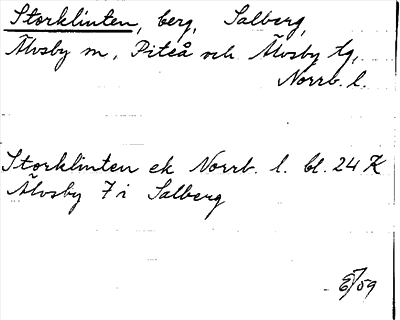 Storklinten, berg, Salberg,
Älvsby sn, Piteå och Älvsby tg,
Norrb. l.
Storklinten ek Norrb. l. bl. 24 K
Älvsby 7 i Salberg
/59